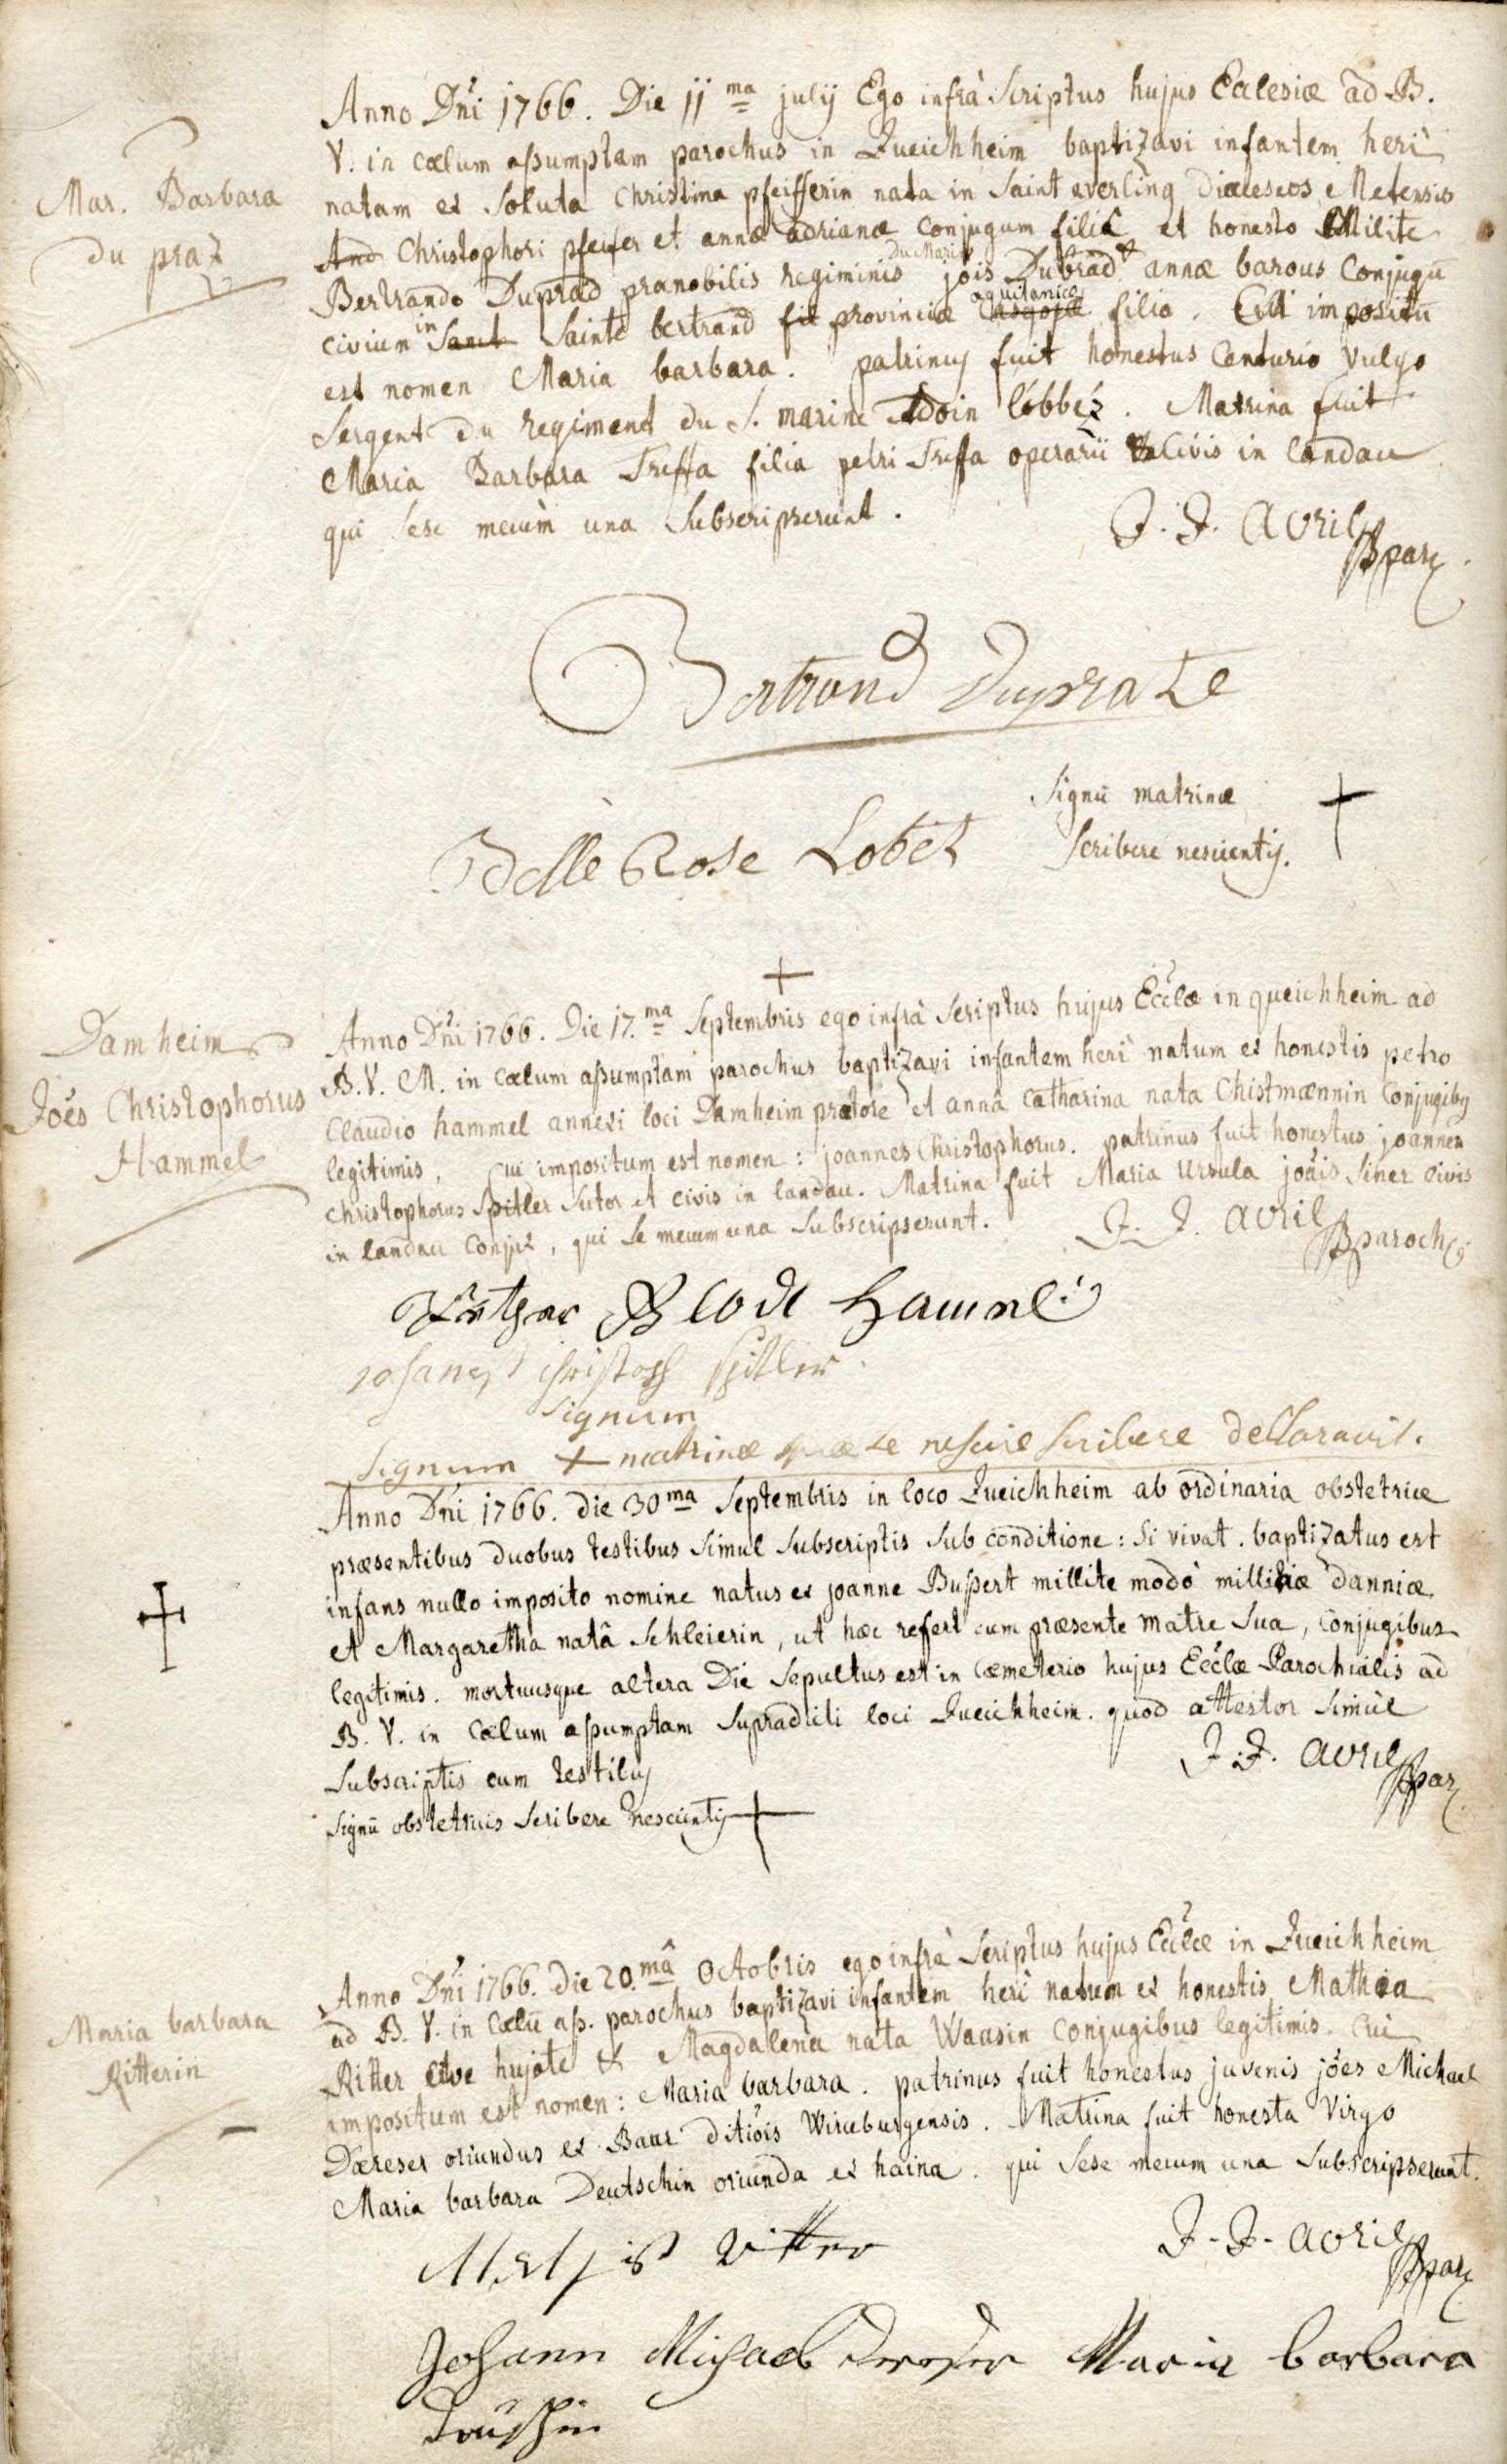 Mar. Barbara
du praz
Anno Dñi 1766. Die 11ma julij Ego infrà Scriptus hujus Ecclesiæ ad B.
V. in cœlum assumptam parochus in Queichheim baptizavi infantem heri
natam ex Soluta Christina pfeifferin nata in Saint averling Diœleseos Metensis
And Christophori pfeifer et annæ adrianæ Conjugum filiâ et honesto Milite
Bertrando Duprad prænobilis regiminis Du Marin jois Dubrad et annæ barous Conjugū
civium in Sanct Sainte bertrand fil provinciæ aquitanicæ filio. Cui impositū
est nomen Maria barbara. patrinus fuit honestus Centurio vulgo
Sergent du regiment du S. marine Adoin lóbbéz. Matrina fuit
Maria Barbara Treffa filia petri Treffa operarii Civis in landau
qui sese mecùm una Subscripserunt.
J. J. Avril par
Bertrand Duprate
Belle Rose Lobet
Signū matrinæ
Scribere nescientis. +
+
Damheim
Joés Christophorus
Hammel
Anno Dñi 1766. Die 17.ma Septembris ego infrà Scriptus hujus Ecclæ in queichheim ad
B. V. M. in cœlum assumptam parochus baptizavi infantem heri natum ex honestis petro
Claudio hammel annexi loci Damheim prætore et annâ Catharina nata Chistmænnin Conjugibus
legitimis. Cui impositum est nomen: joannes Christophorus. patrinus fuit honestus joannes
christophorus Spitler Sutor et civis in landau. Matrina fuit Maria Ursula joâis Siner civis
in landau Conjux, qui se mecum una Subscripserunt.
J. J. avril paroch
Hamml
Johanes Christoph Spitler
Signum
Signum + matrinæ quæ se nescire scribere declaravit.
Anno Dñi 1766. die 30ma Septembris in loco Queichheim ab ordinaria obstetrice
præsentibus duobus testibus Simul Subscriptis Sub conditione: Si vivat. baptizatus est
infans nullo imposito nomine natus ex joanne Bussert millite modò millitiæ danniæ
et Margaretha natâ Schleierin, ut hæc refert cum præsente matre Sua, Conjugibus
legitimis. mortuusque altera Die Sepultus est in Cæmeterio hujus Ecclæ Parochialis ad
B. V. in Cœlum assumptam Supradicti loci Queichheim. quod attestor Simùl
Subscriptis cum testibus
J. J. avril par
Signū obstetricis Scribere nescientis +
Maria barbara
Ritterin
Anno Dñi 1766. die 20.mâ Octobris ego infrà Scriptus hujus Ecclæ in Queichheim
ad B. V. in Cœlū ass. parochus baptizavi infantem heri natum ex honestis Mathia
Ritter cive hujate et Magdalena nata Waasin Conjugibus legitimis. Cui
impositum est nomen: Maria barbara. patrinus fuit honestus juvenis jões Michael
Dæreser oriundus ex Baur ditiois Wirceburgensis. Matrina fuit honesta Virgo
Maria barbara Deutschin oriunda ex haina. qui Sese mecum una Subscripserunt.
J. J. avril par
Ritter
Johann Michael Dereser Maria barbara